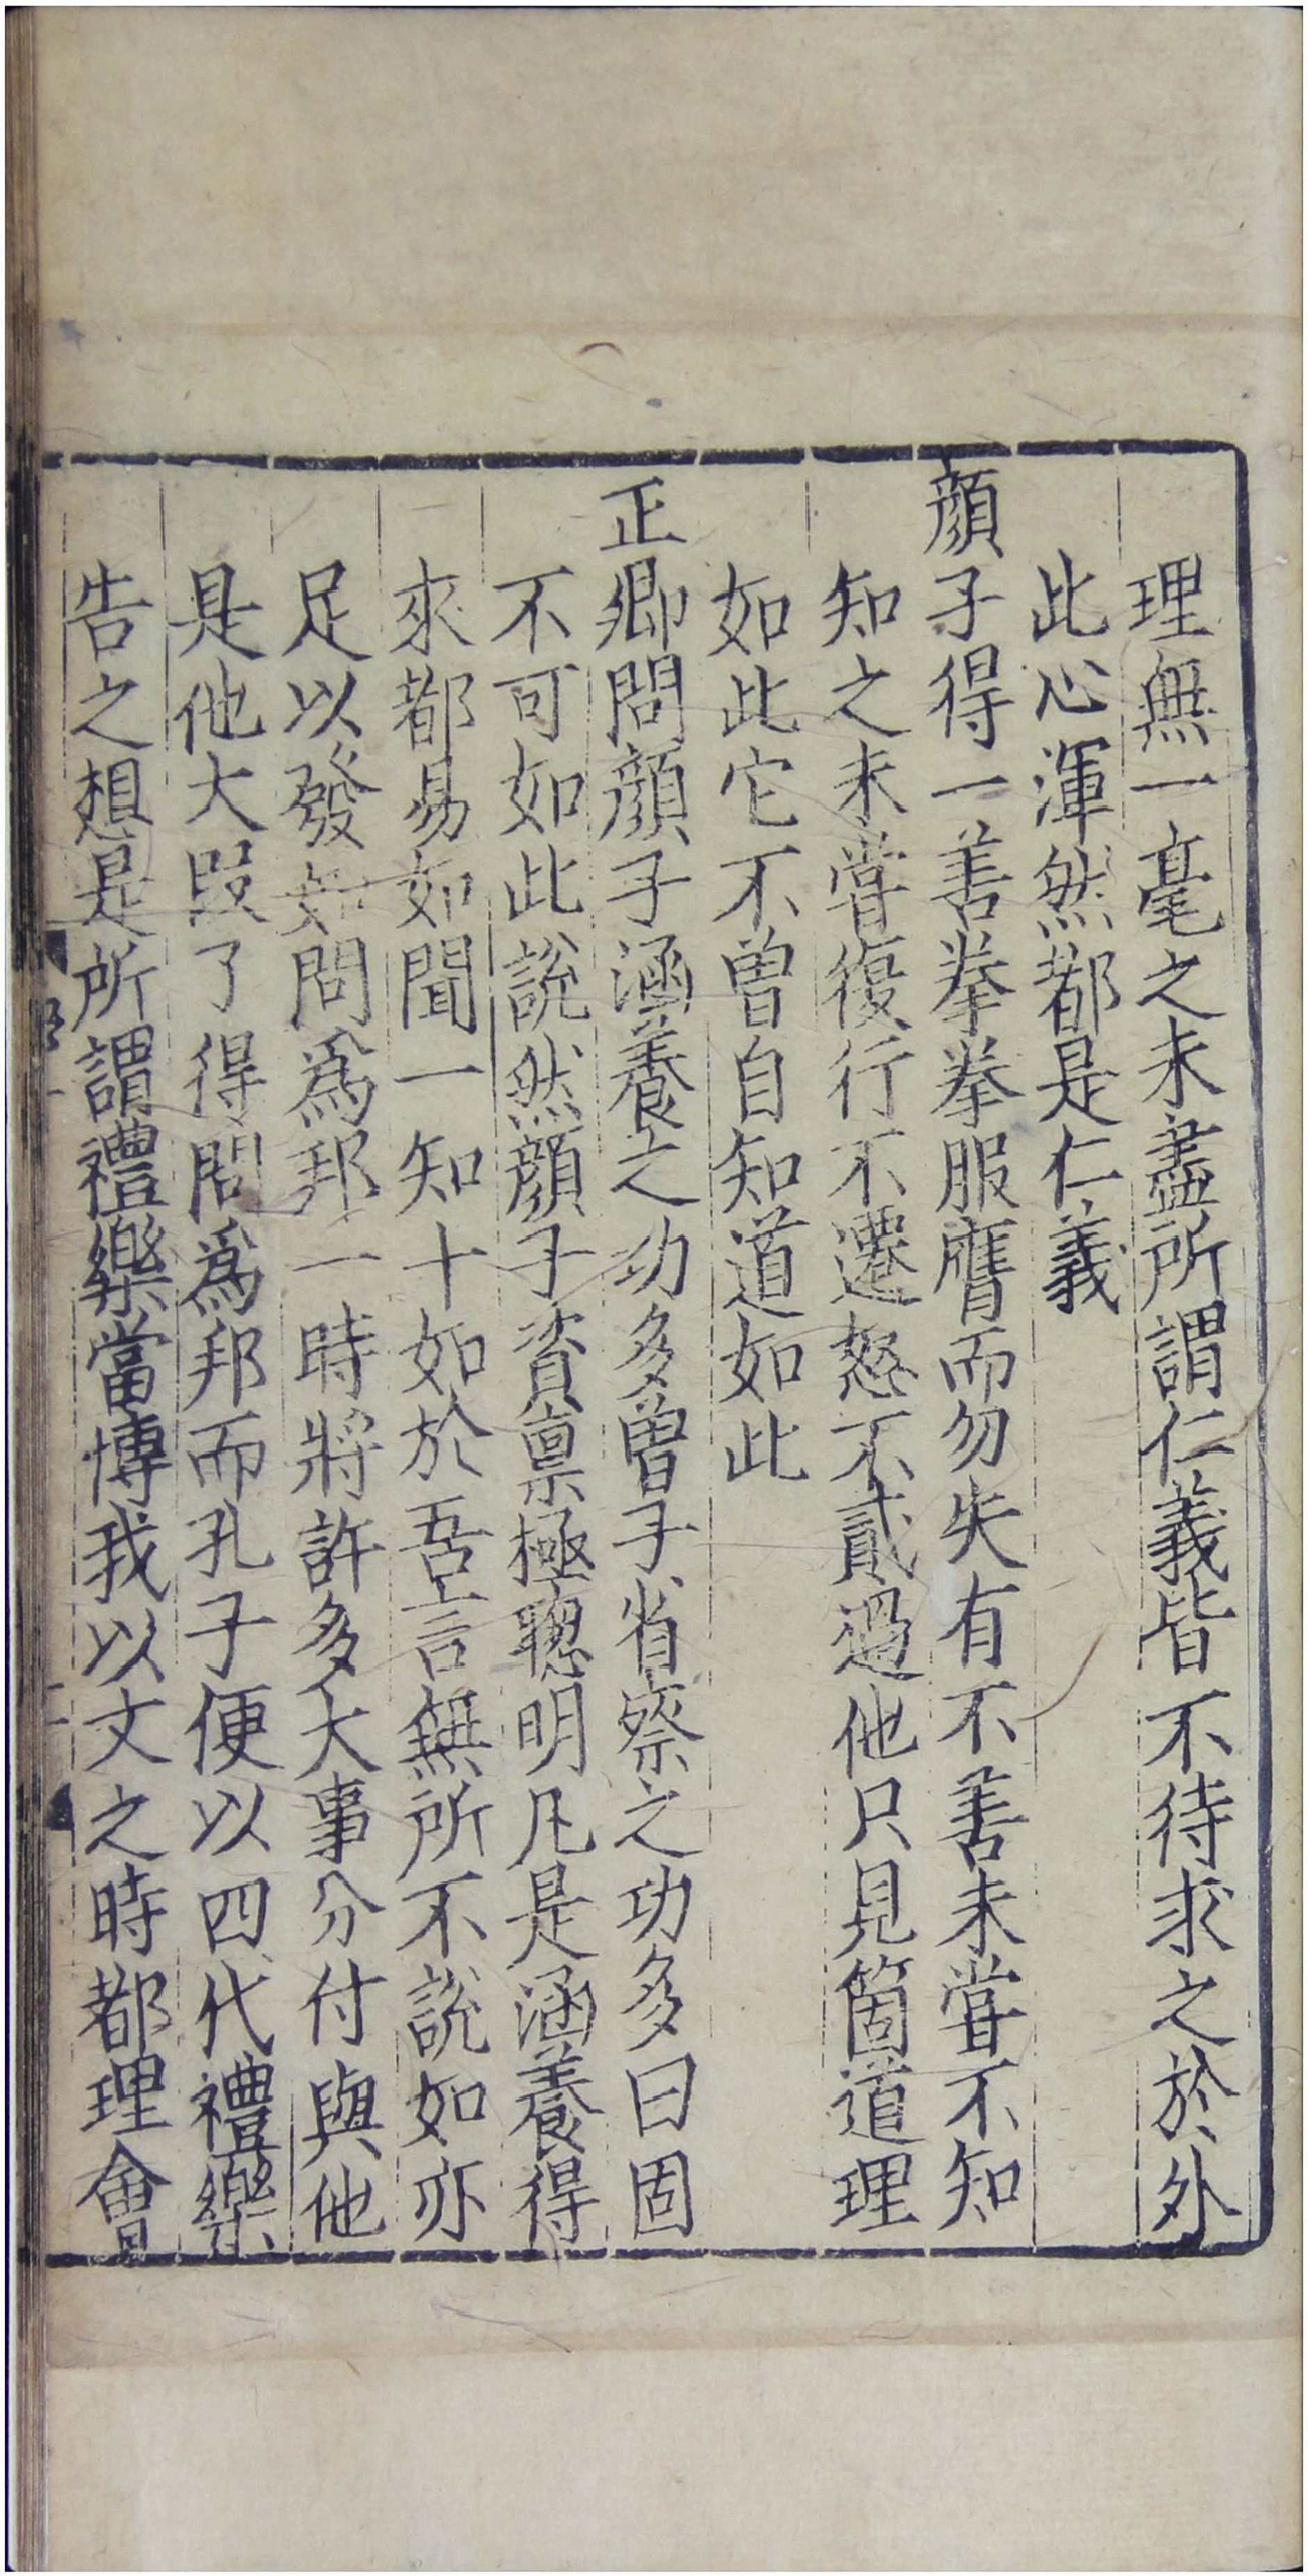 理無一毫之未盡所謂仁義皆不待求之於外
此心渾然都是仁義
顔子得一善拳拳服膺而勿失有不善未甞不知
知之未甞復行不遷怒不貳過他只見箇道理
如此它不曽自知道如此
正卿問顔子涵養之功多曽子省察之功多曰固
不可如此說然顔子資禀極聦明凡是涵養得
來都易如聞一知十如於吾言無所不說如亦
足以發如問爲邦一時將許多大事分付與他
是他大段了得問爲邦而孔子便以四代禮樂
告之想是所謂禮樂當博我以文之時都理會